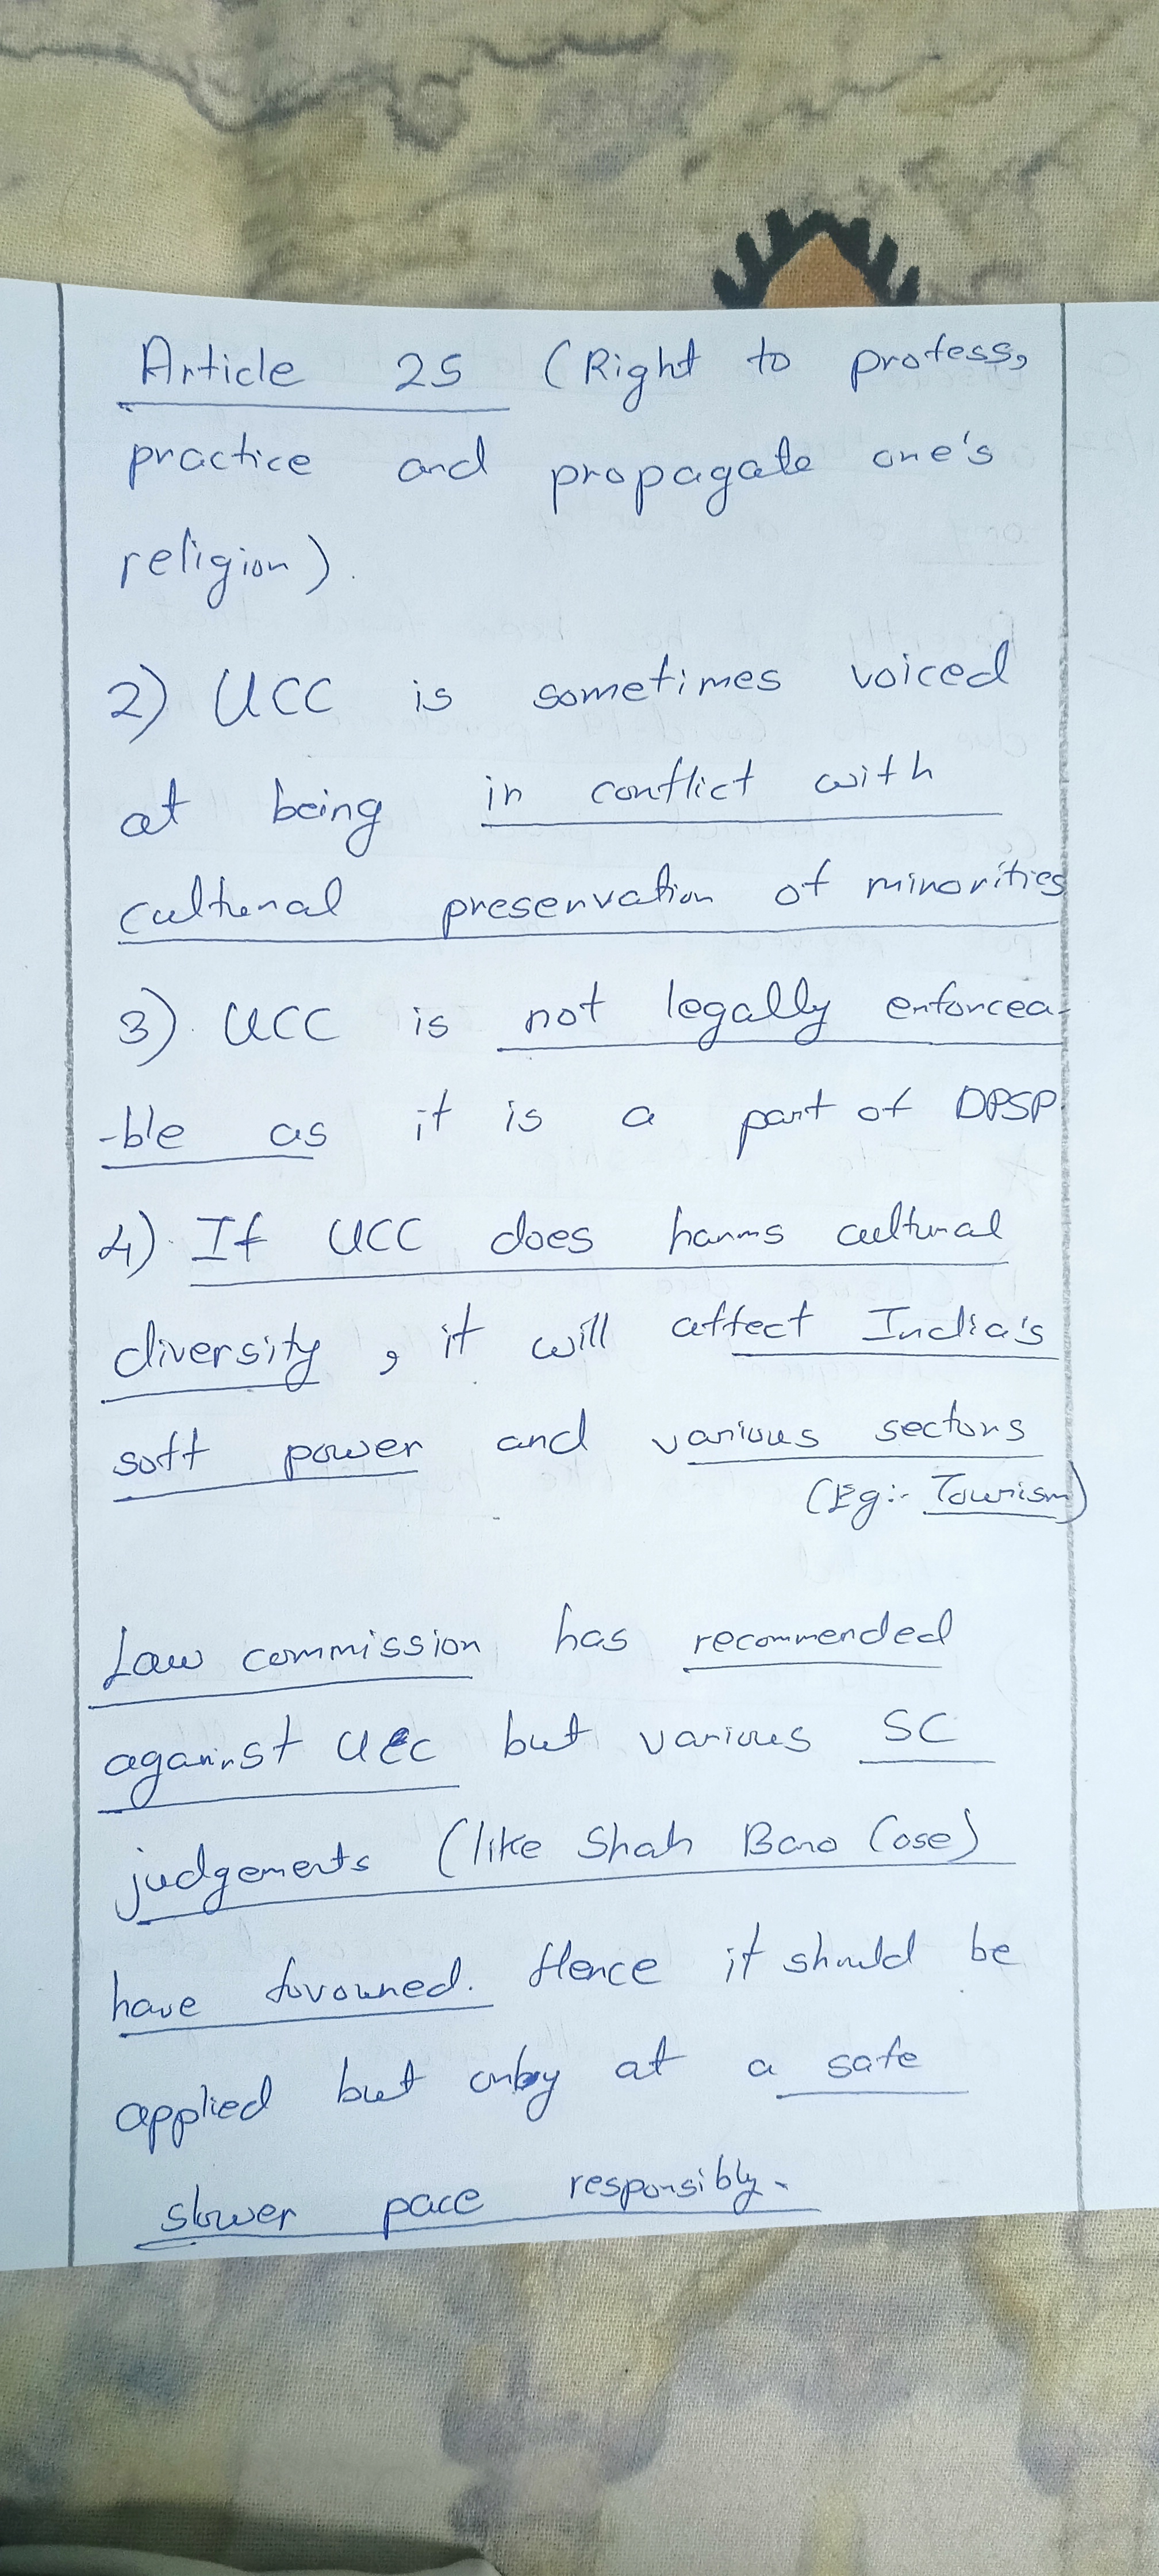 Article 25 (Right to profess,
practice and propagate one's
religion).
2) UCC is sometimes voiced
at being in conflict with
cultural preservation of minorities
3) UCC is not legally enforcea-
-ble as it is a part of DPSP.
4) If UCC does harms cultural
diversity, it will affect India's
soft power and various sectors
(Eg:- Tourism)
Law commission has recommended
against UCC but various SC
judgements (like Shah Bano Case)
have favoured. Hence it should be
applied but only at a safe
slower pace responsibly.